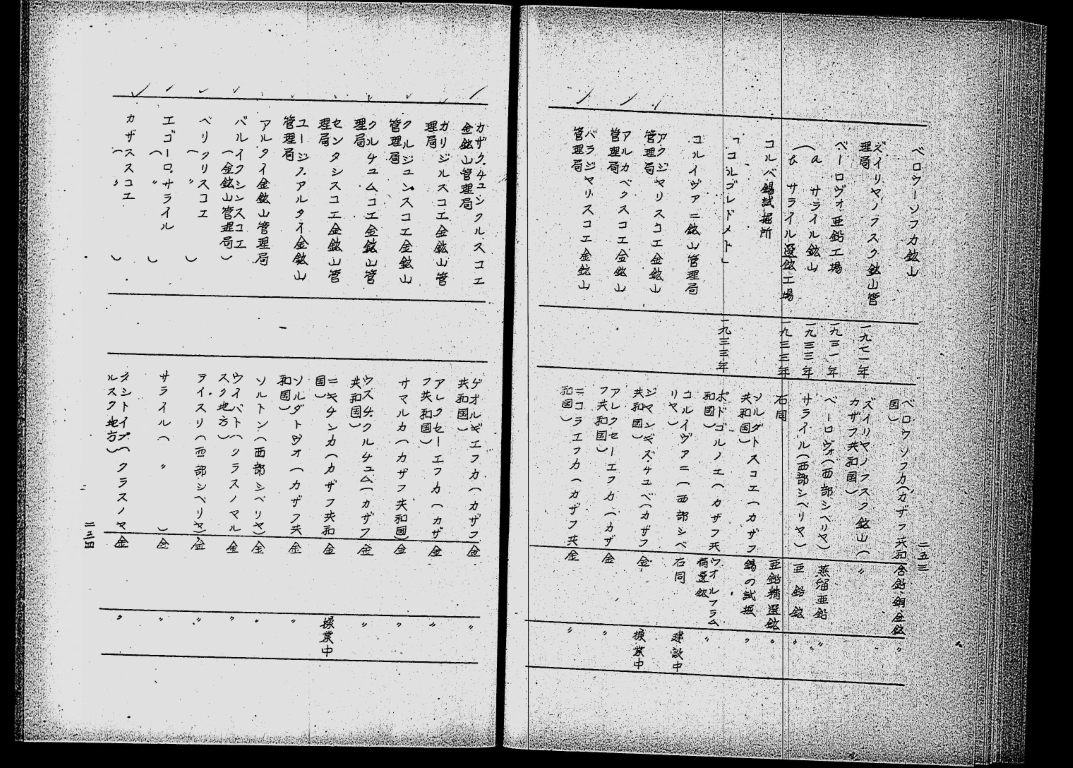 ベロウーソフカ鉱山
ズイリヤノフスク鉱山管
理局
ベーロヴォ亜鉛工場
a サライル鉱山
b サライル選鉱工場
コルベ錫試掘所
「コルブレドメト」
コルイヴァニ鉱山管理局
アクジヤリスコエ金鉱山
管理局
アルカベクスコエ金鉱山
管理局
ベラジヤリスコエ金鉱山
管理局
一九七一年
一九三一年
一九三三年
一九三三年
一九三三年
ベロウソフカ(カザフ共和
国)
ズイリヤノフスク鉱山(〃
カザフ共和国)
ベーロヴォ(西部シベリヤ)
サライル(西部シベリヤ)
右同
ソルダトスコエ(カザフ
共和国)
ポドゴルノエ(カザフ共
和国)
コルイヴァニ(西部シベ
リヤ)
ジマンギズチュベ(カザフ
共和国)
アレクセーエフカ(カザ
フ共和国)
ニコラエフカ(カザフ共
和国)
含鉛、銅、金鉱
蒸溜亜鉛
亜鉛鉱
亜鉛精選鉱
錫の試掘
ウオルフラム
精選鉱
右同
金
金
金
〃
〃
〃
〃
〃
〃
建設中
操業中
〃
〃
二三三
カザクチュンクルスコエ
金鉱山管理局
ガリジルスコエ金鉱山管
理局
クルジュンスコエ金鉱山
管理局
クルチュムコエ金鉱山管
理局
センタシスコエ金鉱山管
理局
ユージノアルタイ金鉱山
管理局
アルタイ金鉱山管理局
バルイクシンスコエ
(金鉱山管理局)
ベリクリスコエ
( 〃 )
エゴーロサライル
( 〃 )
カザススコエ
( 〃 )
ゲオルギエフカ(カザフ
共和国)
アレクセーエフカ(カザ
フ共和国)
サマルカ(カザフ共和国)
ウスチクルチュム(カザフ
共和国)
ニキチンカ(カザフ共和
国)
ソルダトヴォ(カザフ共
和国)
ソルトン(西部シベリヤ)
ウイバト(クラスノヤル
スク地方)
テイスリ(西部シベリヤ)
サライル( 〃 )
(クラスノヤ
ルスク地方)
金
金
金
金
金
金
金
金
金
金
金
〃
〃
〃
〃
操業中
〃
〃
〃
〃
〃
〃
二三四